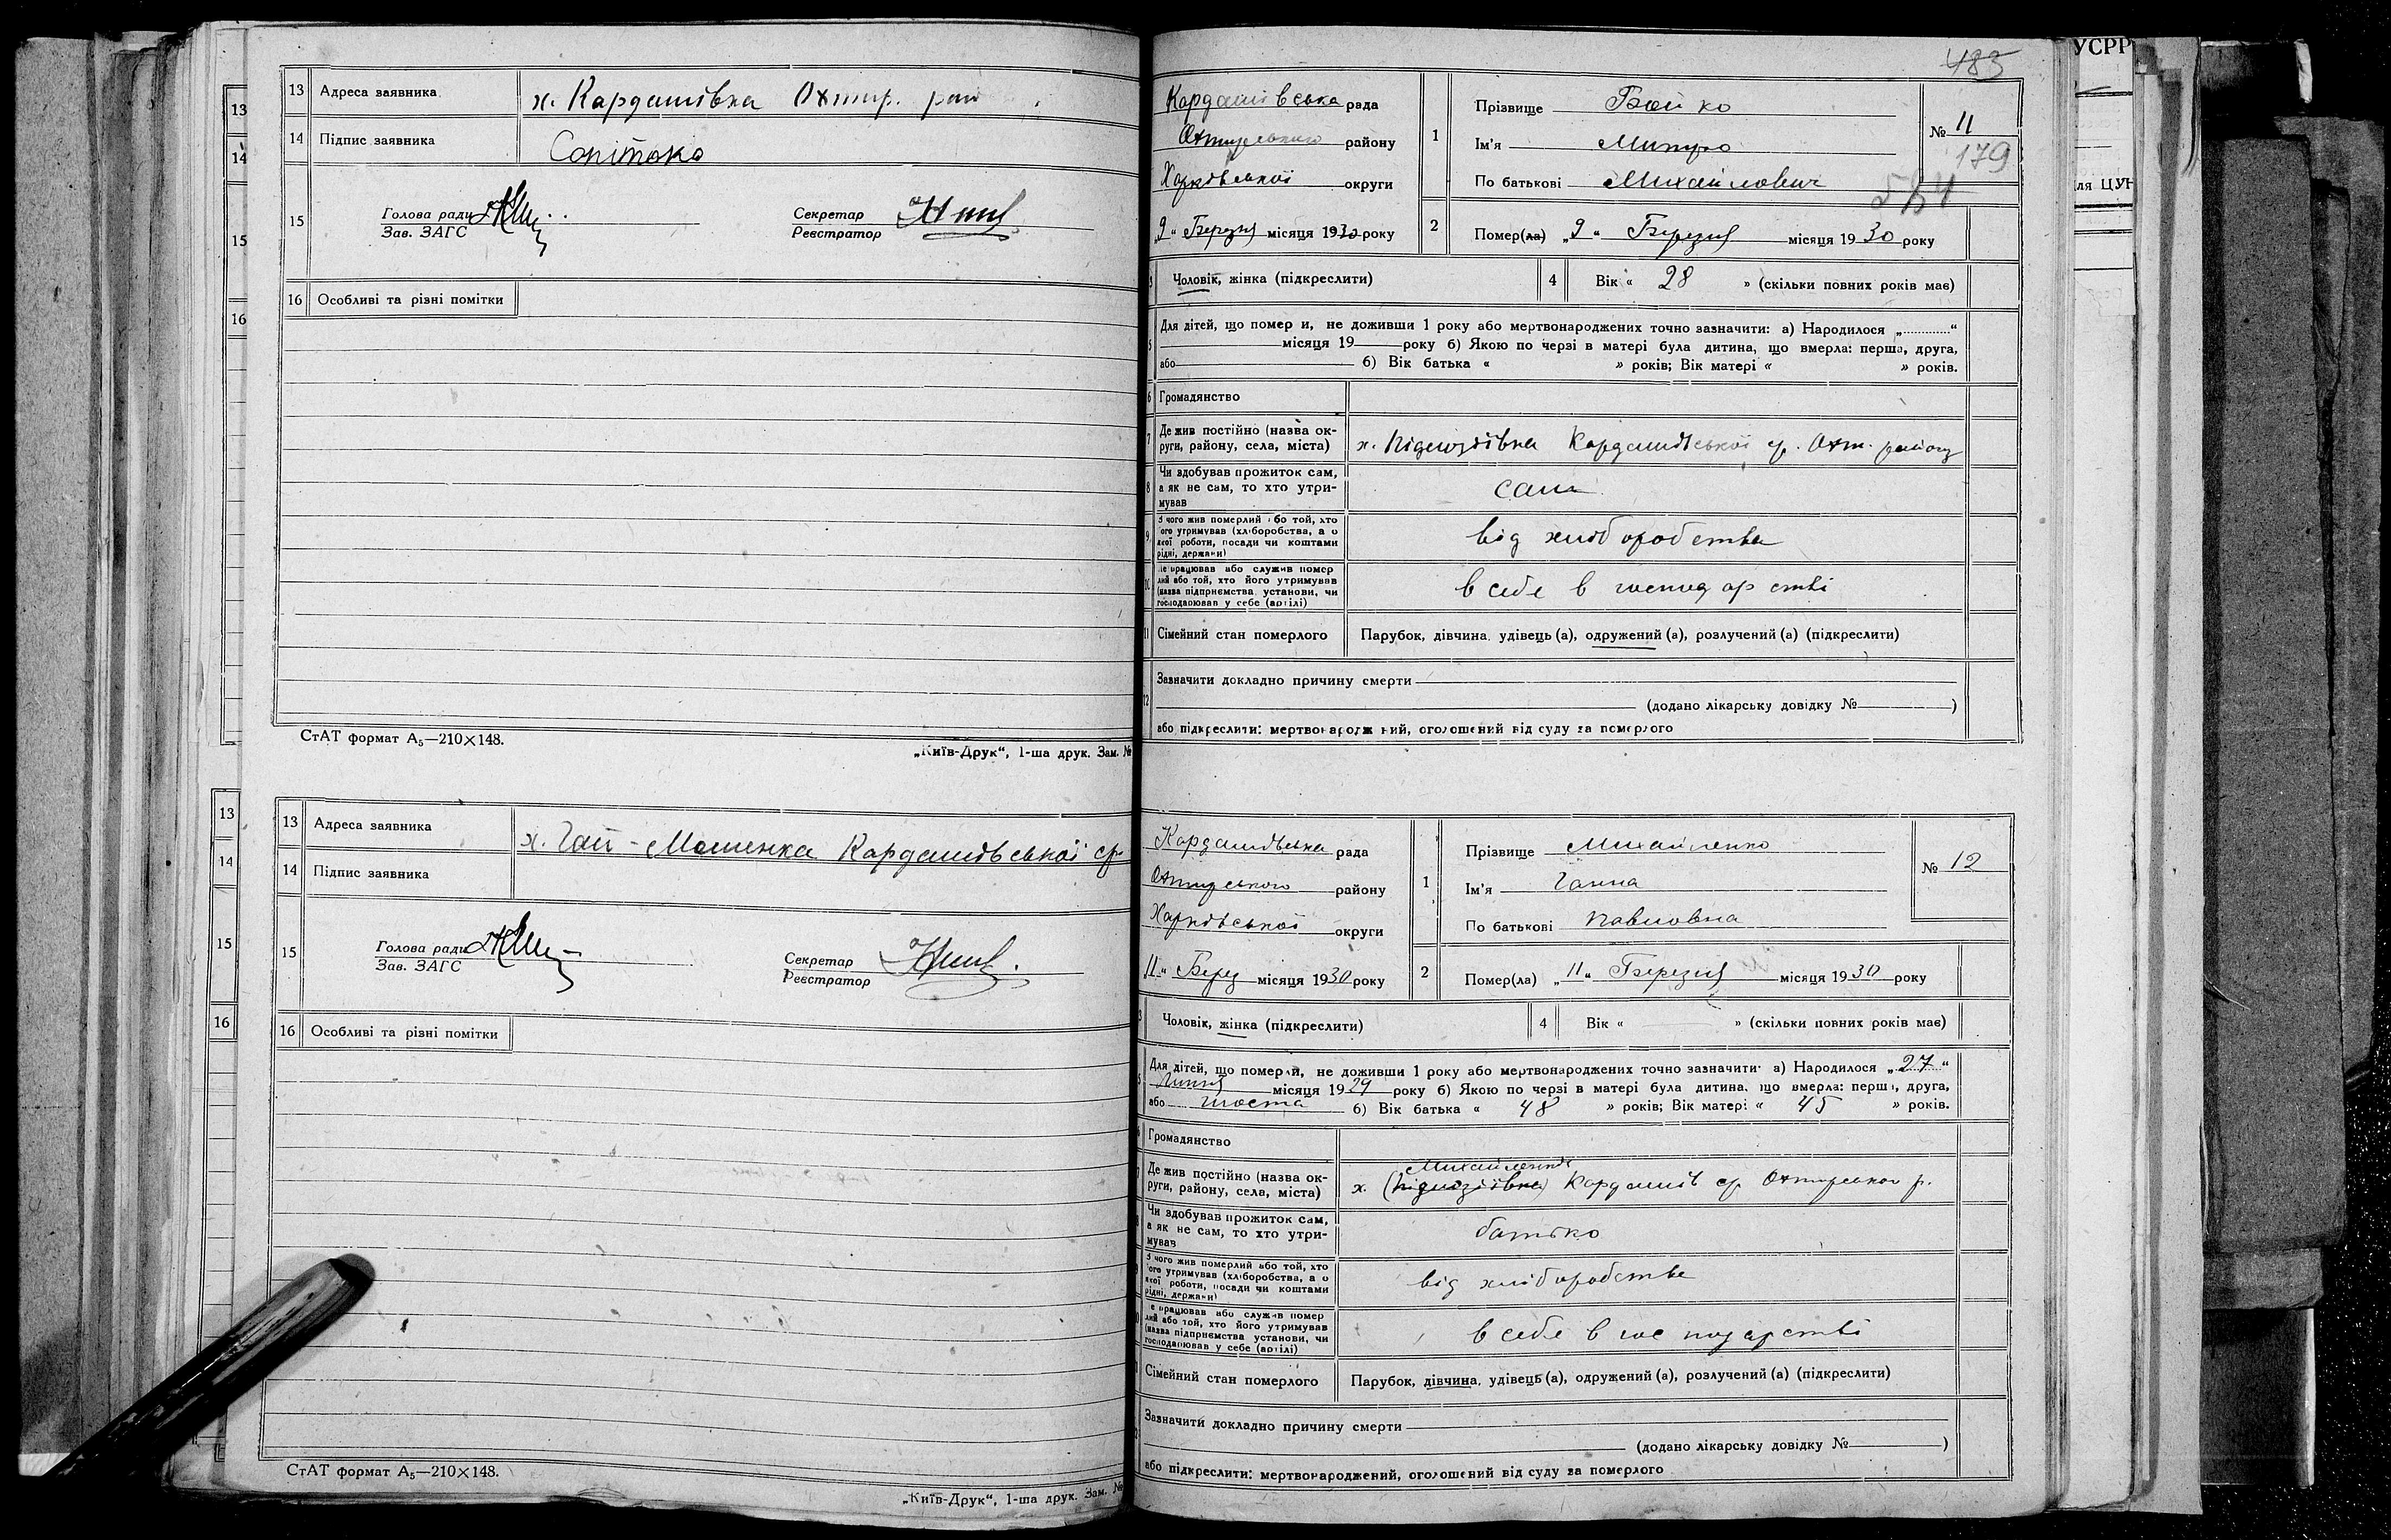 13 Адреса заявника х. Кардашівка Охтир. рай
14 Підпис заявника Сопітоко
15 Голова ради Секретар
Зав. ЗАГС Реєстратор
16 Особливі та різні помітки
СтАТ формат А5—210×148.
„Київ-Друк“, 1-ша друк. Зам. №
13 Адреса заявника х. Гай-Мошенка Кардашівської ср.
14 Підпис заявника
15 Голова ради Секретар
Зав. ЗАГС Реєстратор
16 Особливі та різні помітки
СтАТ формат А5—210×148.
„Київ-Друк“, 1-ша друк. Зам. №
13
14
15
16
13
14
15
16
483
Кардашівська рада
Охтирського району
Харківської округи
„9“ Березня місяця 1930 року
1 Прізвище Бойко
Ім'я Митро
По батькові Михайлович
№ 11
179
2 Помер(ла) „9“ Березня місяця 1930 року
3 Чоловік, жінка (підкреслити) 4 Вік « 28 » (скільки повних років має)
5 Для дітей, що померли, не доживши 1 року або мертвонароджених точно зазначити: а) Народилося „ “
місяця 19 року б) Якою по черзі в матері була дитина, що вмерла: перша, друга,
або б) Вік батька « » років; Вік матері « » років.
6 Громадянство
7 Де жив постійно (назва ок-
руги, району, села, міста) х. Кардашівської ср. Охт. району
8 Чи здобував прожиток сам,
а як не сам, то хто утри-
мував сам
9 З чого жив померлий або той, хто
його утримував (хліборобства, а о
якої роботи, посади чи коштами
рідні, держави) від хліборобства
10 Де працював або служив помер
лий або той, хто його утримував
(назва підприємства, установи, чи
господарював у себе (артілі) в себе в господарстві
11 Сімейний стан померлого Парубок, дівчина, удівець (а), одружений (а), розлучений (а) (підкреслити)
12 Зазначити докладно причину смерти
(додано лікарську довідку № )
або підкреслити: мертвонароджений, оголошений від суду за померлого
Кардашівська рада
Охтирського району
Харківської округи
„11“ Берез місяця 1930 року
1 Прізвище Михайленко
Ім'я Ганна
По батькові Павловна
№ 12
2 Помер(ла) „11“ Березня місяця 1930 року
3 Чоловік, жінка (підкреслити) 4 Вік « » (скільки повних років має)
5 Для дітей, що померли, не доживши 1 року або мертвонароджених точно зазначити: а) Народилося „27“
Липня місяця 1929 року б) Якою по черзі в матері була дитина, що вмерла: перша, друга,
або шоста б) Вік батька « 48 » років; Вік матері « 45 » років.
6 Громадянство
7 Де жив постійно (назва ок-
руги, району, села, міста) х. Кардашів ср. Охтирського р.
8 Чи здобував прожиток сам,
а як не сам, то хто утри-
мував батько
9 З чого жив померлий або той, хто
його утримував (хліборобства, а о
якої роботи, посади чи коштами
рідні, держави) від хліборобства
10 Де працював або служив помер
лий або той, хто його утримував
(назва підприємства установи, чи
господарював у себе (артілі) в себе в господарстві
11 Сімейний стан померлого Парубок, дівчина, удівець (а), одружений (а), розлучений (а) (підкреслити)
12 Зазначити докладно причину смерти
(додано лікарську довідку № )
або підкреслити: мертвонароджений, оголошений від суду за померлого
УСРР